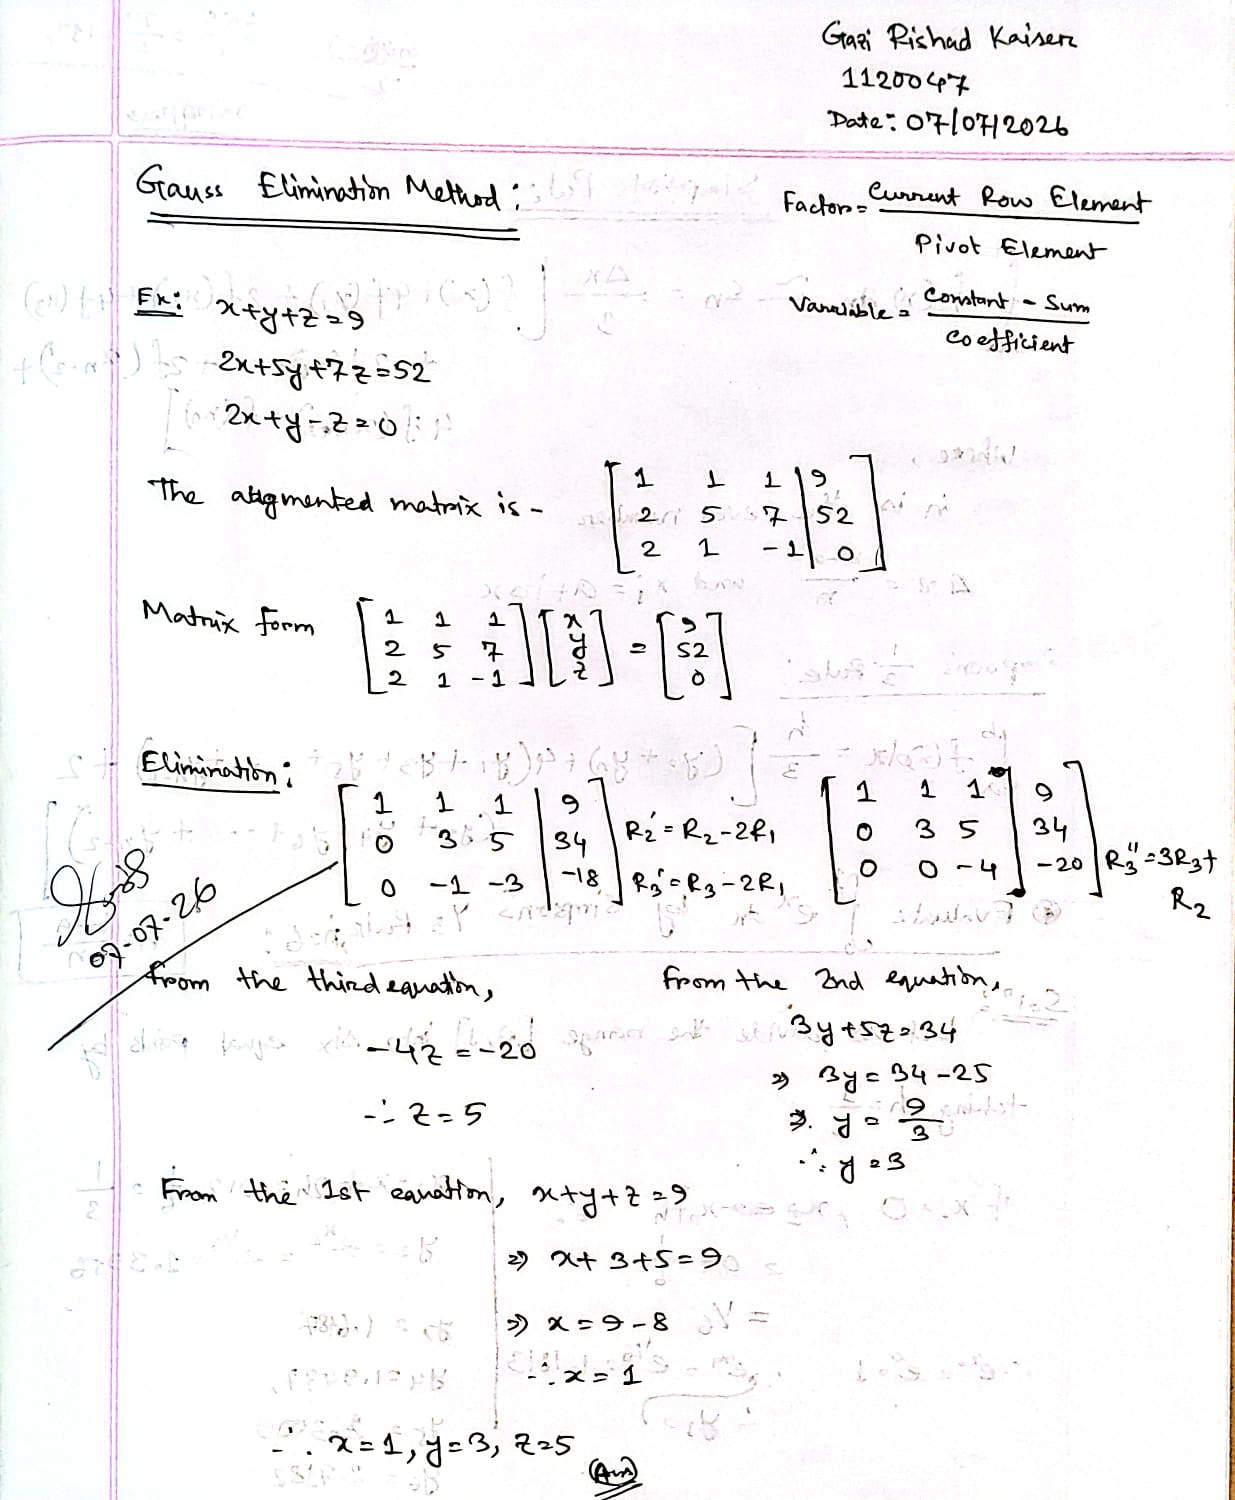 Gazi Rishad Kaiser
1120047
Date: 07/07/2026
Gauss Elimination Method:
Factor = Current Row Element / Pivot Element
Variable = Constant - Sum / Coefficient
Ex: x+y+z=9
2x+5y+7z=52
2x+y-z=0
The augmented matrix is -
1 1 1 | 9
2 5 7 | 52
2 1 -1 | 0
Matrix form
[1 1 1] [x] = [9]
[2 5 7] [y] [52]
[2 1 -1] [z] [0]
Elimination:
1 1 1 | 9
0 3 5 | 34 R2' = R2-2R1
0 -1 -3 | -18 R3' = R3-2R1
1 1 1 | 9
0 3 5 | 34
0 0 -4 | -20 R3'' = 3R3+
R2
07-07-26
From the third equation,
-4z = -20
∴ z = 5
From the 2nd equation,
3y+5z=34
⇒ 3y = 34-25
⇒ y = 9/3
∴ y = 3
From the 1st equation, x+y+z=9
⇒ x+3+5=9
⇒ x=9-8
∴ x=1
∴ x=1, y=3, z=5
(Ans)